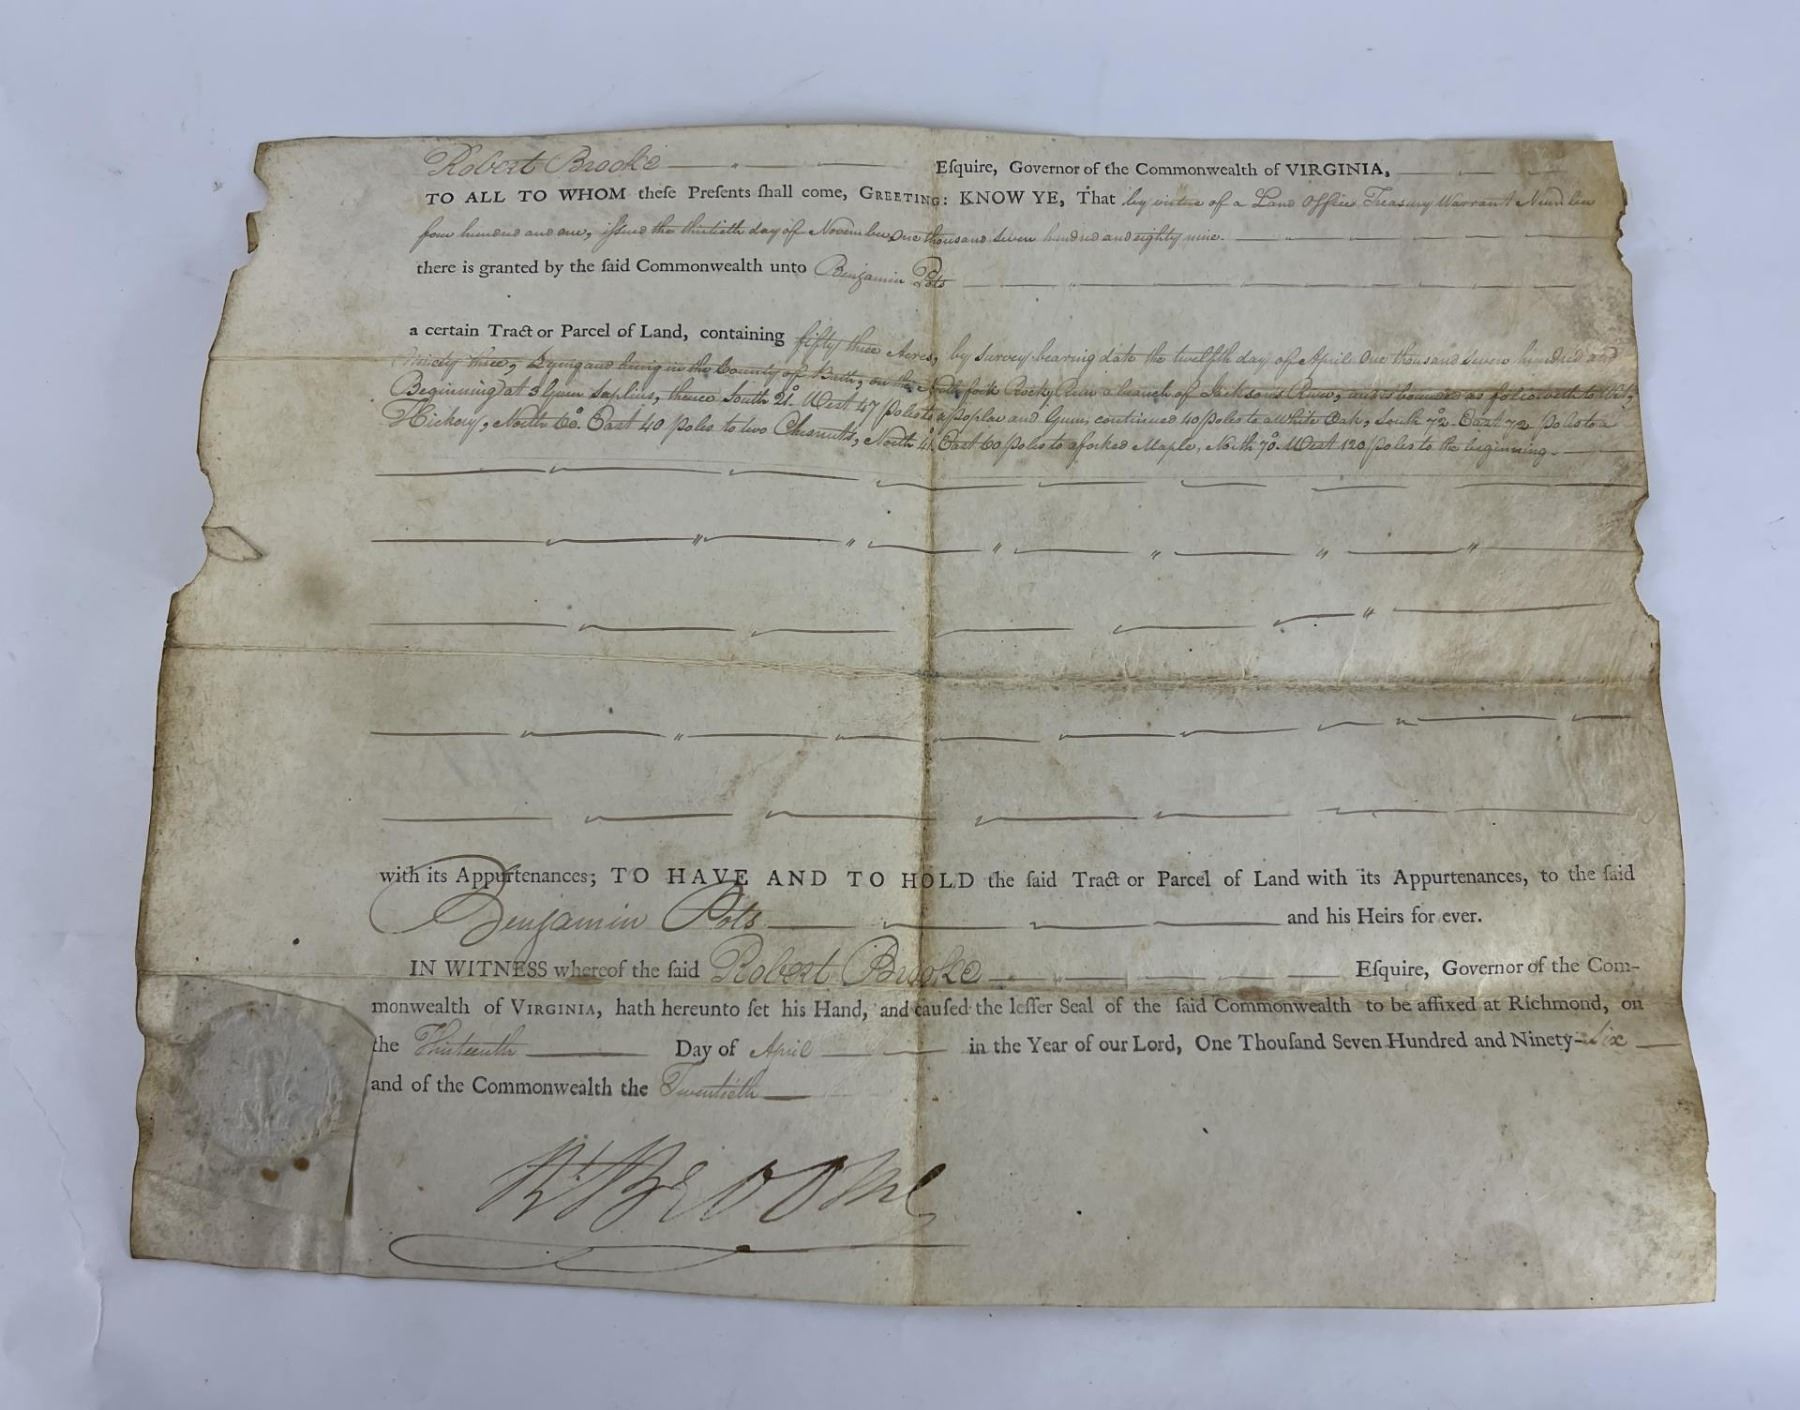 Robert Brooke Eſquire, Governor of the Commonwealth of VIRGINIA,
TO ALL TO WHOM theſe Preſents ſhall come, GREETING: KNOW YE, That by virtue of a Land Office Treasury Warrant Number
four hundred and one, iſsued the thirtieth day of November One thousand seven hundred and eighty nine.
there is granted by the ſaid Commonwealth unto Benjamin Pots
a certain Tract or Parcel of Land, containing fifty three Acres, by Survey bearing date the twelfth day of April One thousand seven hundred and
Ninety three, Lying and being in the County of Bath, on the North fork Rocky Run a branch of Jacksons River, and is bounded as followeth to Wit,
Beginning at 3 Gum Saplins, thence South 21° West 47 poles to a poplar and Gum, continued 40 poles to a White Oak, South 72° East 72 poles to a
Hickory, North 60° East 40 poles to two Chesnuts, North 41° East 60 poles to a forked Maple, North 70° West 120 poles to the beginning.
with its Appurtenances; TO HAVE AND TO HOLD the ſaid Tract or Parcel of Land with its Appurtenances, to the ſaid
Benjamin Pots and his Heirs for ever.
IN WITNESS whereof the ſaid Robert Brooke Eſquire, Governor of the Com-
monwealth of VIRGINIA, hath hereunto ſet his Hand, and cauſed the leſſer Seal of the ſaid Commonwealth to be affixed at Richmond, on
the Thirteenth Day of April in the Year of our Lord, One Thouſand Seven Hundred and Ninety-Six
and of the Commonwealth the Twentieth
Rt Brooke